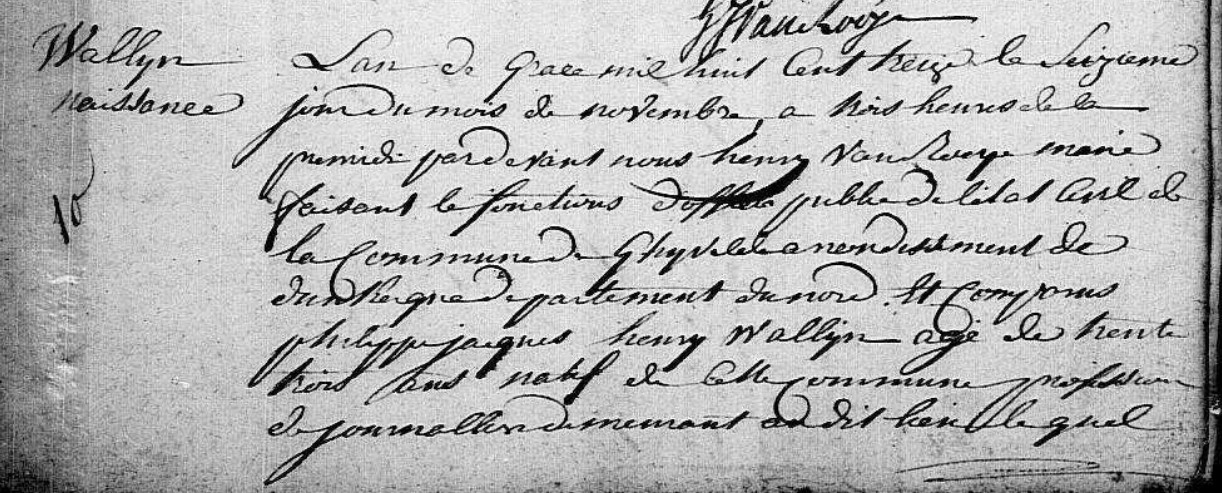 VanRooÿe
Wallyn
naissance
10
Lan de Grace mil huit Cent treize le Seizieme
jour du mois de novembre a trois heures de la
premidi pardevant nous henry VanRooye maire
faisant le fonctions d'officie public de létat Civil de
la Commune de Ghyvelde arrondissement de
dunkerque departement du nord Est Comparus
philippe jacques henry Wallyn agé de trente
trois ans natif de Cette commune profession
de journallier demeurant au dit lieu le quel